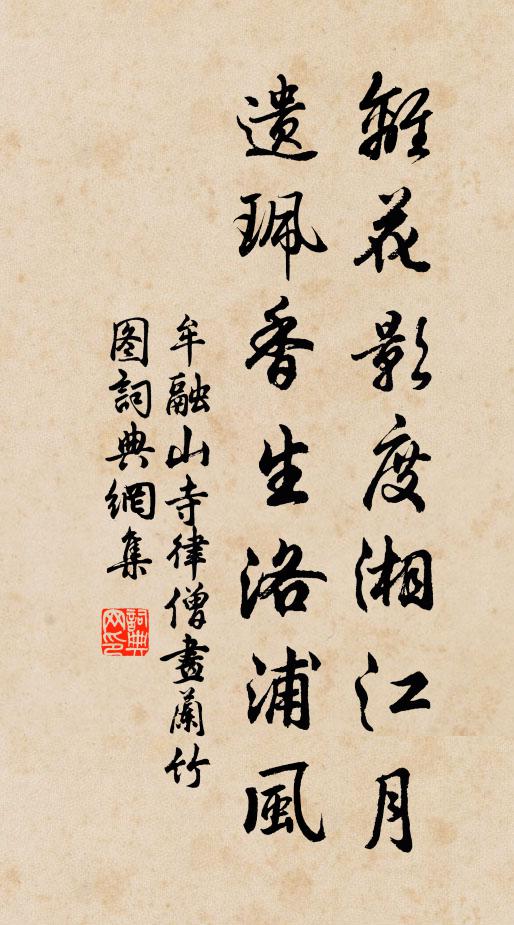 離花影度湘江月
遺珮香生洛浦風
牟融山寺律僧畫蘭竹
图詞典網集
詞典网印